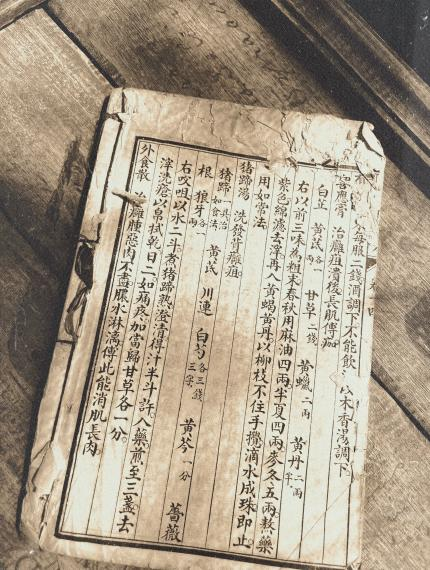 每服二錢酒調下不能飲以木香湯調下
雲應膏 治癰疽潰後長肌傅痂
白芷 黃芪各一兩 甘草二錢 黃蠟二兩 黃丹二兩半
右以前三味為粗末春秋用麻油四兩半夏四兩麥冬五兩熬藥
紫色綿濾去滓再入黃蝎黃丹以柳枝不住手攪滴水成珠即止
用如常法
猪蹄湯 洗發背癰疽
猪蹄一具治如食法 黃芪 川連 白芍各三錢三字 黃芩一分 薔薇
根 狼牙各一兩
右㕮咀以水二斗煮猪蹄熟澄清得汁半斗許入藥煎至三盞去
滓洗瘡以帛拭乾日二如痛疼加當歸甘草各一分
外食散 治癰腫惡肉不盡膿水淋漓傅此能消肌長肉